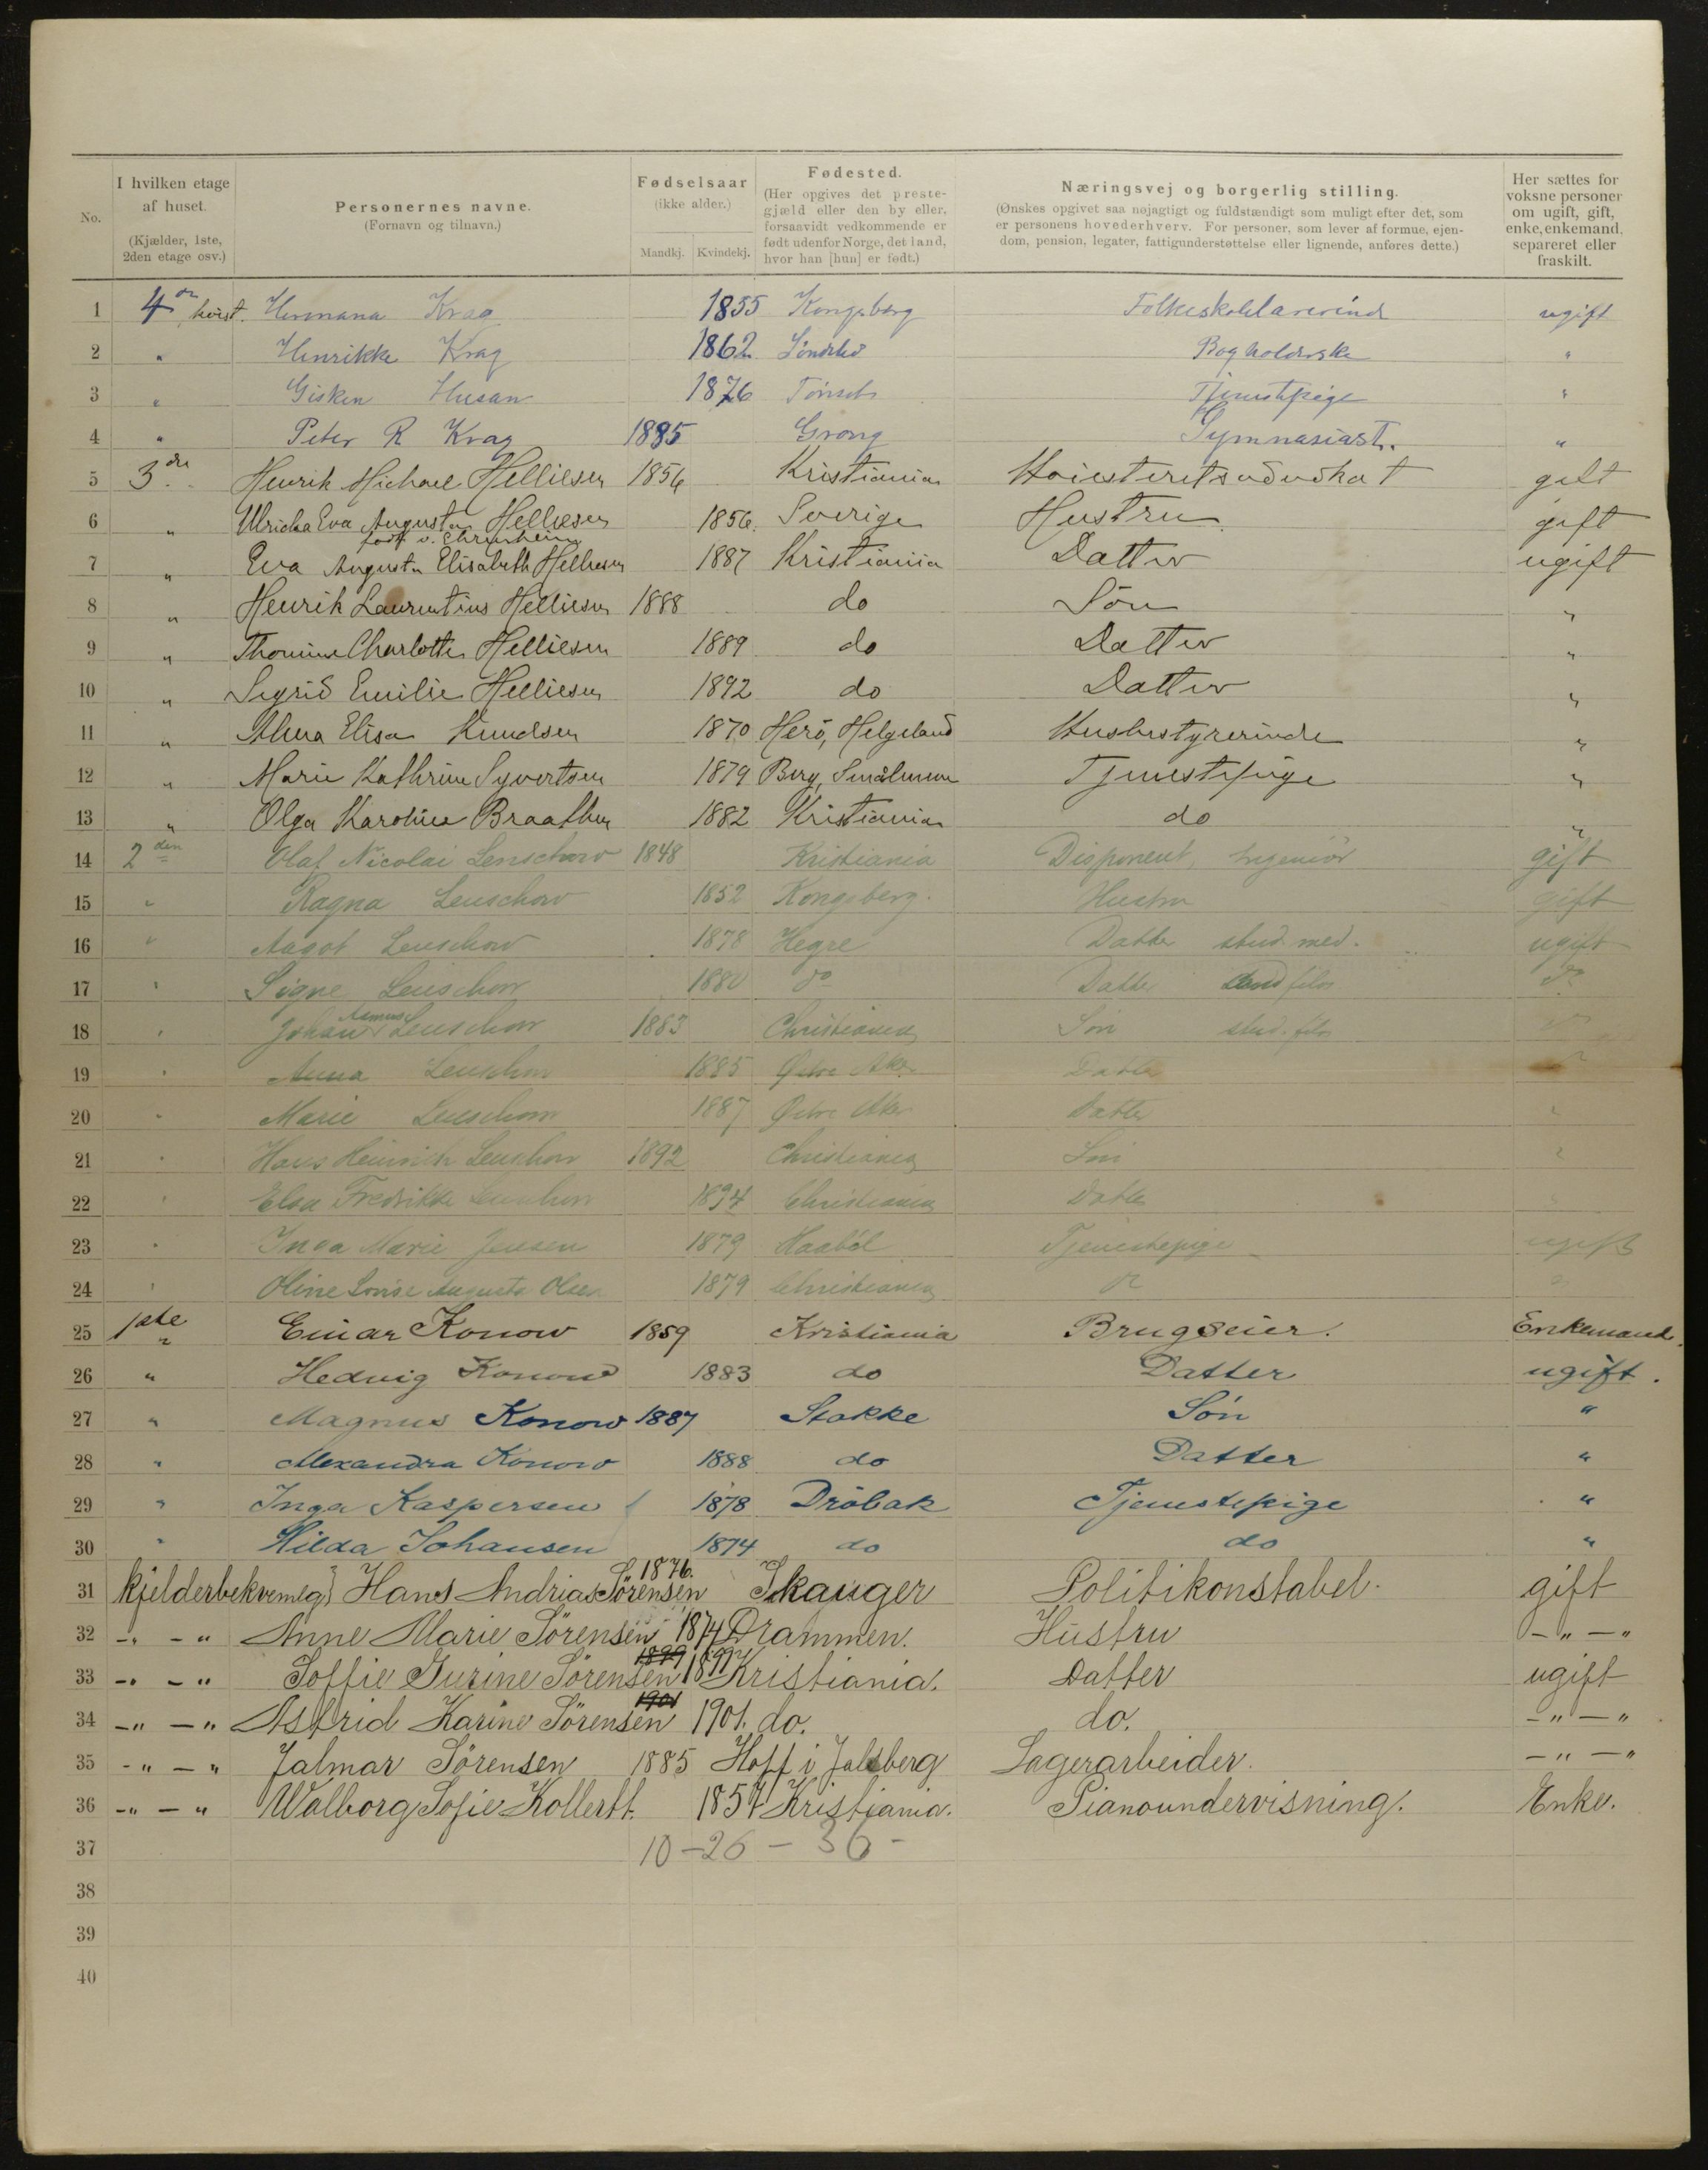 No.
I hvilken etage af huset. (Kjælder, 1ste, 2den etage osv.)
Personernes navne. (Fornavn og tilnavn.)
Fødselsaar (ikke alder.) Mandkj. Kvindekj.
Fødested. (Her opgives det prestegjæld eller den by eller, forsaavidt vedkommende er født udenfor Norge, det land, hvor han [hun] er født.)
Næringsvej og borgerlig stilling. (Ønskes opgivet saa nøjagtigt og fuldstændigt som muligt efter det, som er personens hovederhverv. For personer, som lever af formue, ejendom, pension, legater, fattigunderstøttelse eller lignende, anføres dette.)
Her sættes for voksne personer om ugift, gift, enke, enkemand, separeret eller fraskilt.
1 4de kvist. Hermana Krag 1855 Kongsberg ugift
2 " Henrikke Krag 1862 Bogholderske "
3 " Gisken Husan 1876 Tönset Tjenestepige "
4 " Peter R Krag 1885 Grong Gymnasiast. "
5 3die Henrik Michael Helliesen 1856 Kristiania Høiesteretsadvokat gift
6 " Ulricha Eva Augusta Helliesen 1856. Sverige Hustru gift
født v.
7 " Eva Augusta Elisabeth Helliesen 1887 Kristiania Datter ugift
8 " Henrik Laurentius Helliesen 1888 do Sön "
9 " Thomine Charlotte Helliesen 1889 do Datter "
10 " Sigrid Emilie Helliesen 1892 do Datter "
11 " Alma Elisa Knudsen 1870 Herö, Helgeland Husbestyrerinde "
12 " Marie Kathrine Syvertsen 1879 Berg, Smålenene Tjenestepige "
13 " Olga Karoline Braathen 1882 Kristiania do "
14 2den Olaf Nicolai Lenschow 1848 Kristiania Disponent, Ingeniör gift
15 " Ragna Lenschow 1852 Kongsberg. Hustru gift
16 " Aagot Lenschow 1878 Hegre Datter stud. med. ugift
17 " Signe Lenschow 1880 do Datter filos do
18 " Johan Lenschow 1883 Christiania Sön stud. filos
19 " Anna Lenschow 1885 Østre Aker Datter
20 " Marie Lenschow 1887 Østre Aker Datter "
21 " Hans Heinrich Lenschow 1892 Christiania Sön "
22 " Elsa Fredrikke Lenschow 1894 Christiania Datter "
23 " Inga Marie Jensen 1879 Haaböl Tjenestepige ugift
24 " Oline Lovise Augusta Olsen 1879 Christiania do "
25 1ste " Einar Konow 1859 Kristiania Brugseier. Enkemand.
26 " Hedvig Konow 1883 do Datter ugift.
27 " Magnus Konow 1887 Stokke Sön "
28 " Alexandra Konow 1888 do Datter "
29 " Inga Kaspersen 1878 Dröbak Tjenestepige "
30 " Hilda Johansen 1874 do do "
31 kjelderbekvemlg. Hans Andrias Sörensen 1876. Skauger Politikonstabel. gift
32 -"-" Anne Marie Sörensen 1874 Drammen. Hustru -"-"
33 -"-" Soffie Gurine Sörensen 1899 1899 Kristiania. Datter ugift
34 -"-" Astrid Karine Sörensen 1901 1901. do. do. -"-"
35 -"-" Jalmar Sörensen 1885 Hoff i Jalsberg Lagerarbeider. -"-"
36 -"-" Walborg Sofie Kollertt. 1857 Kristiania. Pianoundervisning. Enke.
37 10-26-36-
38
39
40